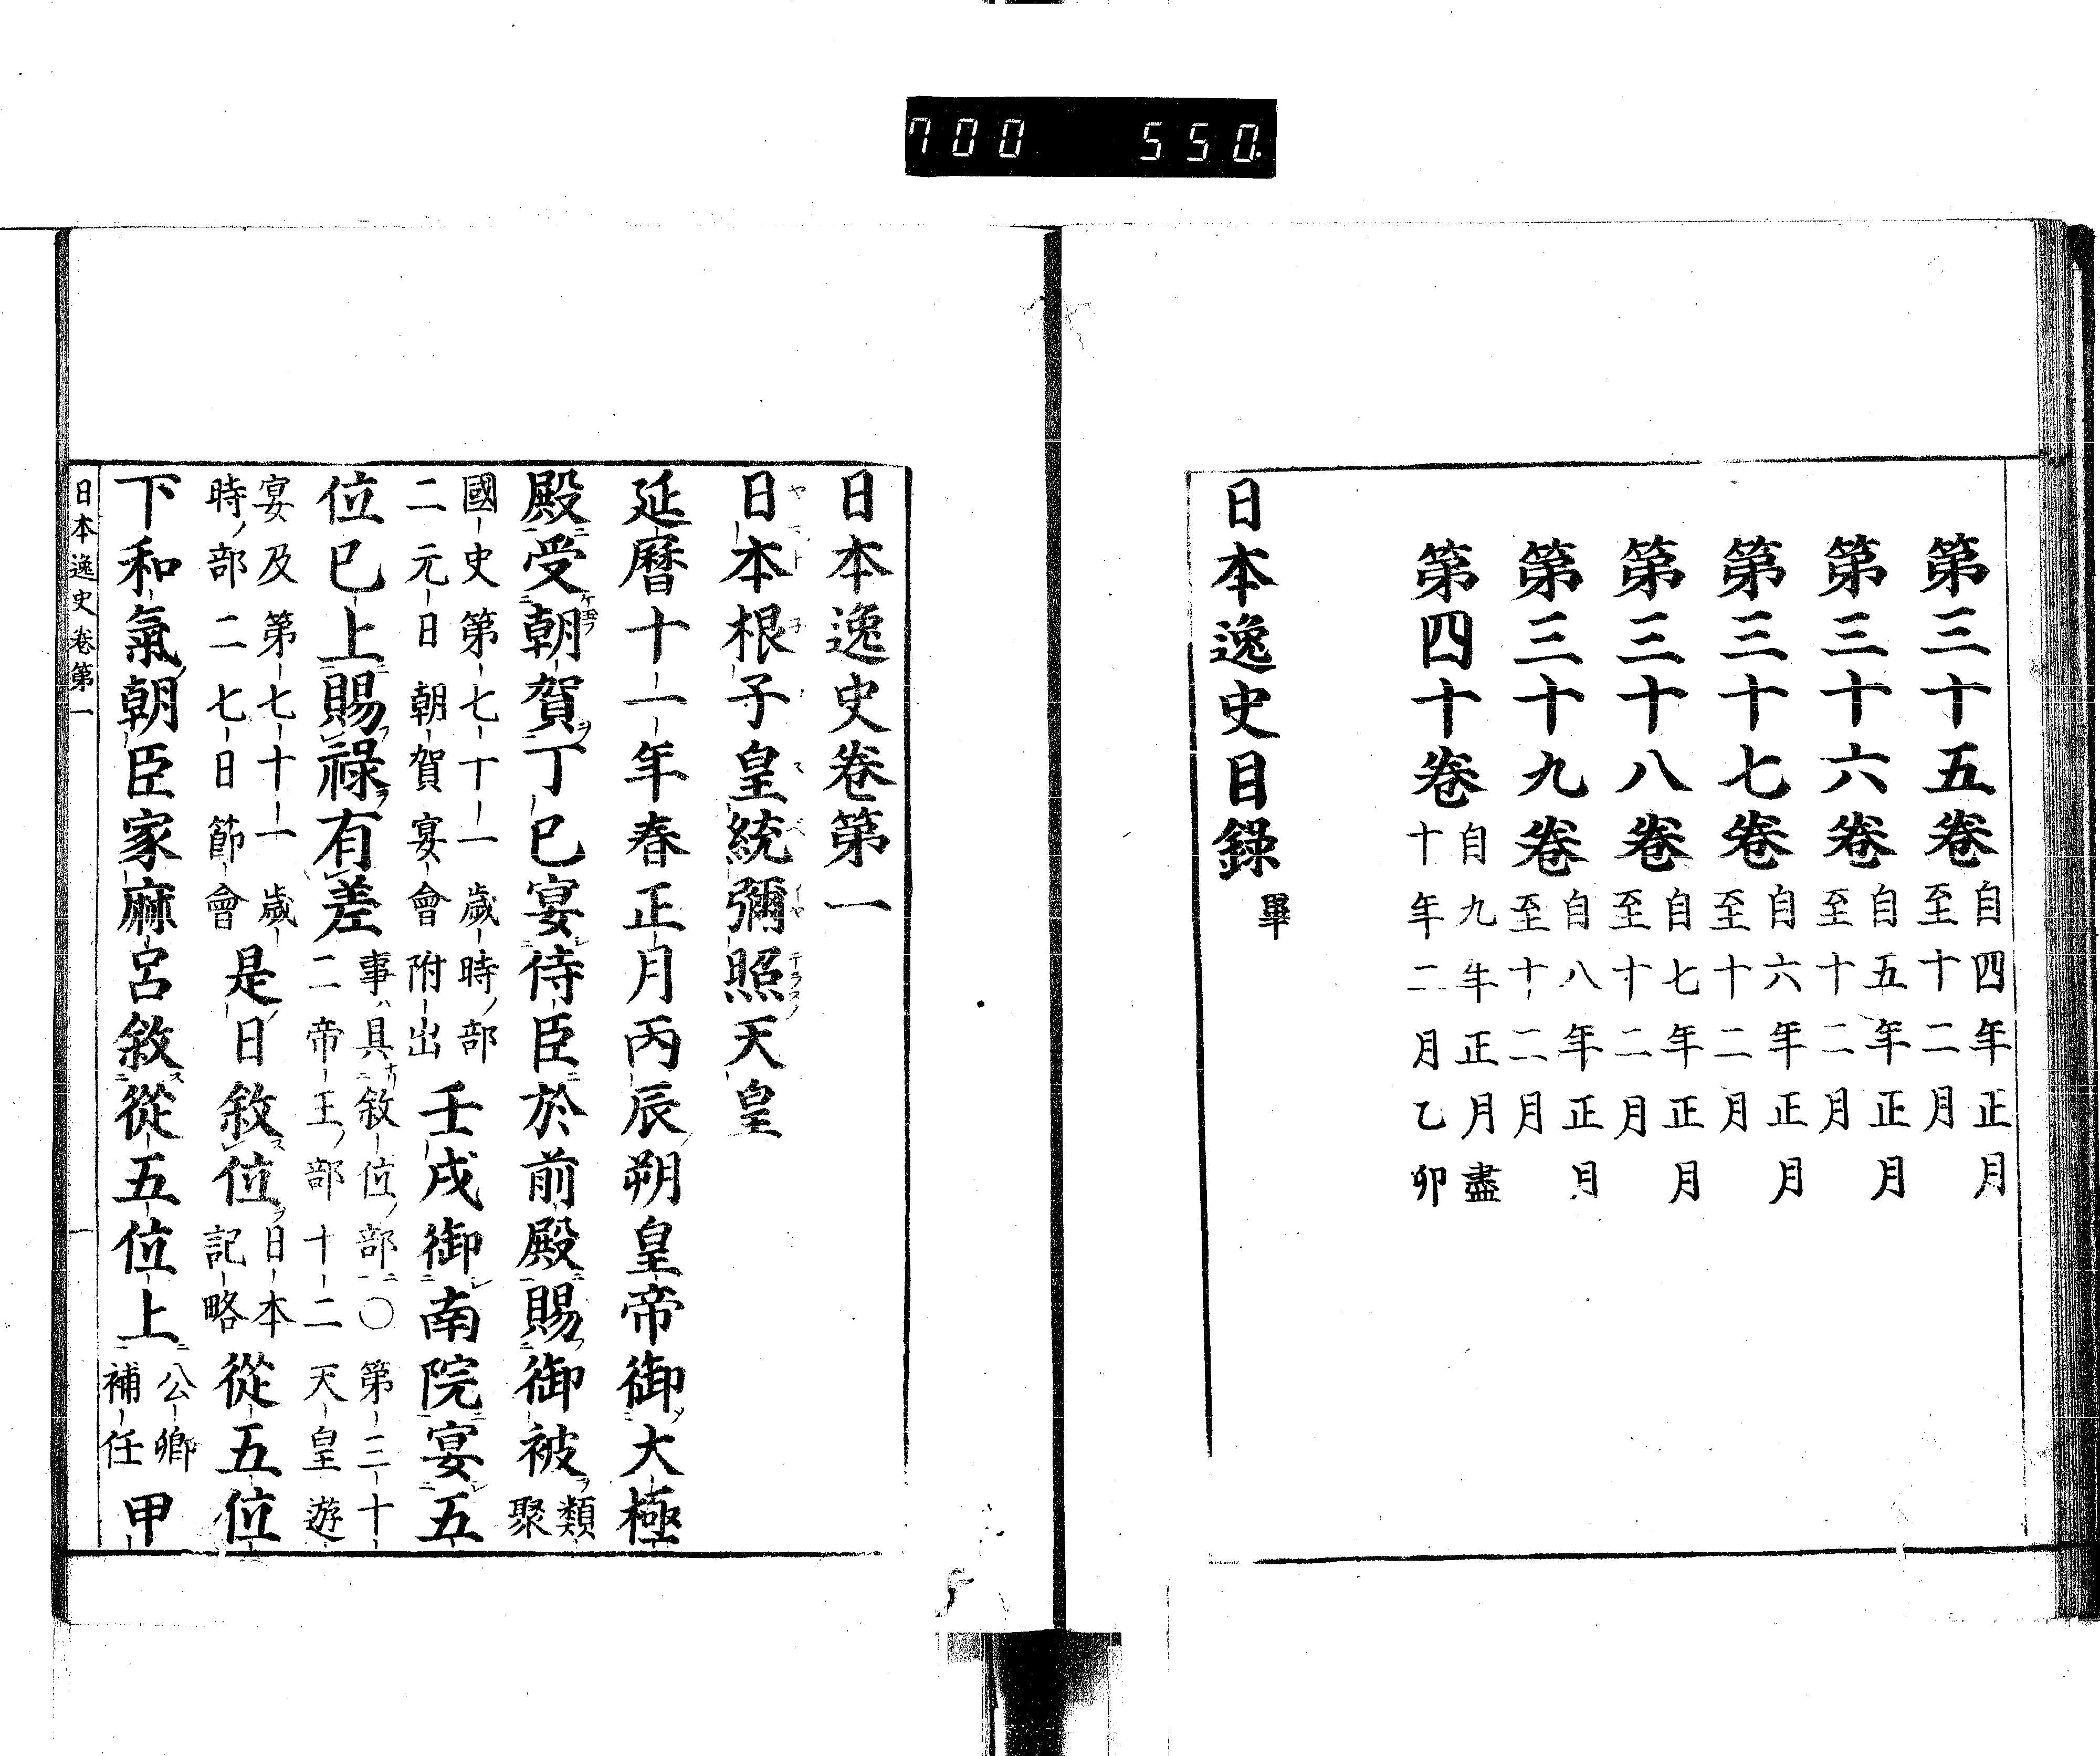 700 550.
第三十五卷 自四年正月至十二月
第三十六卷 自五年正月至十二月
第三十七卷 自六年正月至十二月
第三十八卷 自七年正月至十二月
第三十九卷 自八年正月至十二月
第四十卷 自九年正月盡十年二月乙卯
日本逸史目錄 畢
日本逸史卷第一
日本根子皇統彌照天皇
延曆十一年春正月丙辰朔皇帝御大極
殿受朝賀丁巳宴侍臣於前殿賜御被 類聚
國史第七十一歲時部二元日朝賀宴會附出 壬戌御南院宴五
位已上賜祿有差 事具敘位部○第三十二帝王部十二天皇遊
宴及第七十一歲時部二七日節會 是日敘位 日本記略 從五位
下和氣朝臣家麻呂敘從五位上 公卿補任 甲
日本逸史卷第一 一